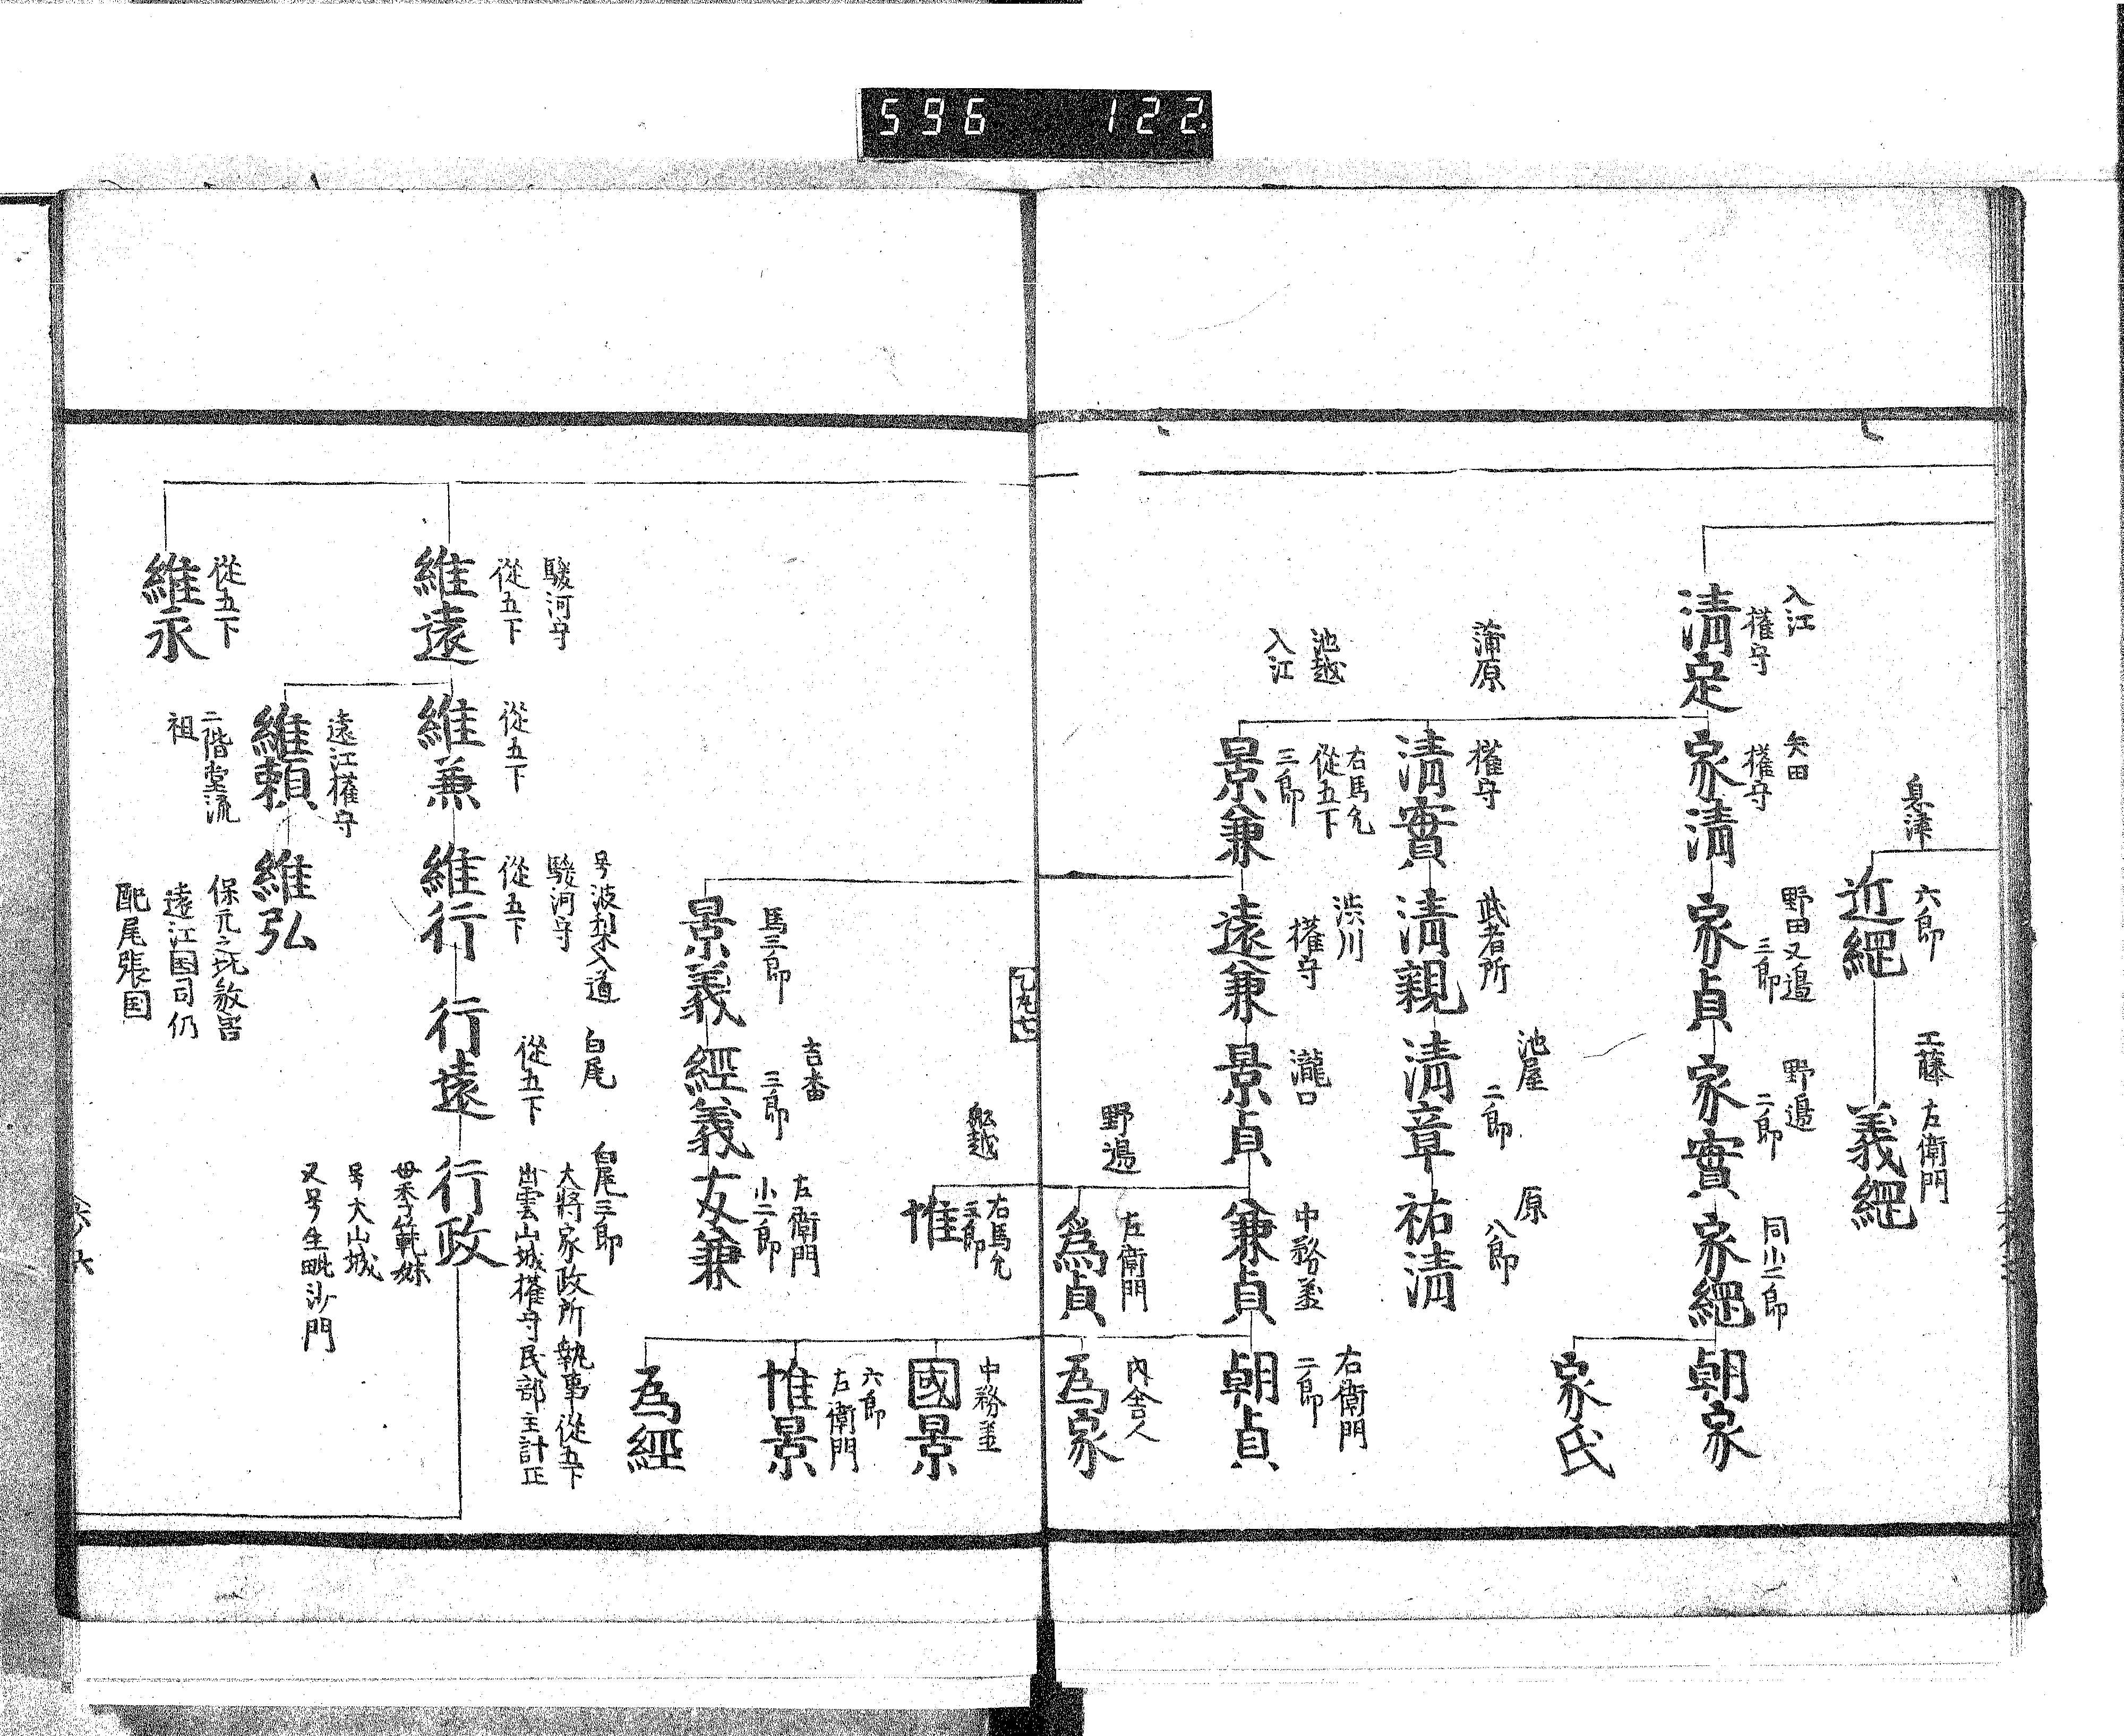 596 122
息津
六郎
近綱
工藤 左衛門
義綱
入江
権守
清定
矢田
権守
家清
野田又邉
三郎
家貞
野邉
二郎
家實
同小二郎
家綱
朝家
家氏
蒲原
権守
清實
武者所
清親
池屋
二郎
清章
原
八郎
祐清
池越
入江
右馬允
従五下
三郎
景兼
渋川
権守
遠兼
瀧口
景貞
中務丞
兼貞
右衛門
二郎
朝貞
野邉
左衛門
為貞
内舎人
為家
舩越
右馬允
三郎
惟
中務丞
國景
六郎
左衛門
惟景
為經
馬三郎
景義
吉香
三郎
經義
左衛門
小二郎
友兼
駿河守
従五下
維遠
従五下
維兼
号波梨入道
駿河守
従五下
維行
白尾
従五下
行遠
白尾三郎
大将家政所執事従五下
出雲山城権守民部主計正
行政
母季範妹
号大山城
又号生毗沙門
遠江権守
維頼
二階堂流
祖
維弘
保元之乱殺害
遠江国司仍
配尾張国
従五下
維永